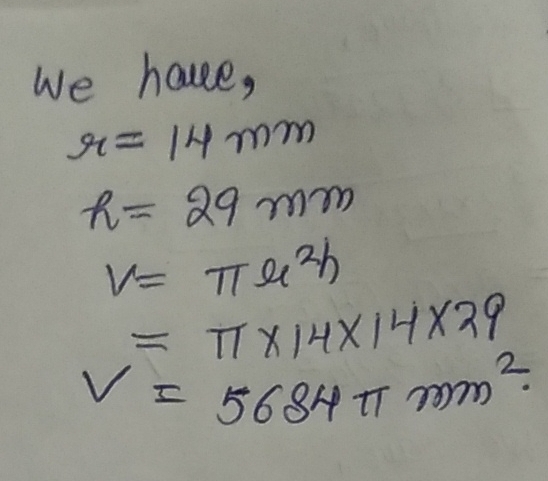 We have,
r = 14 mm
h = 29 mm
V = πr²h
= π×14×14×29
V = 5684π mm².